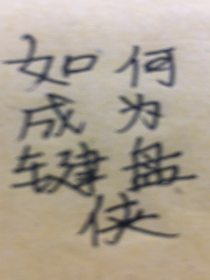 如何
成为
键盘
侠